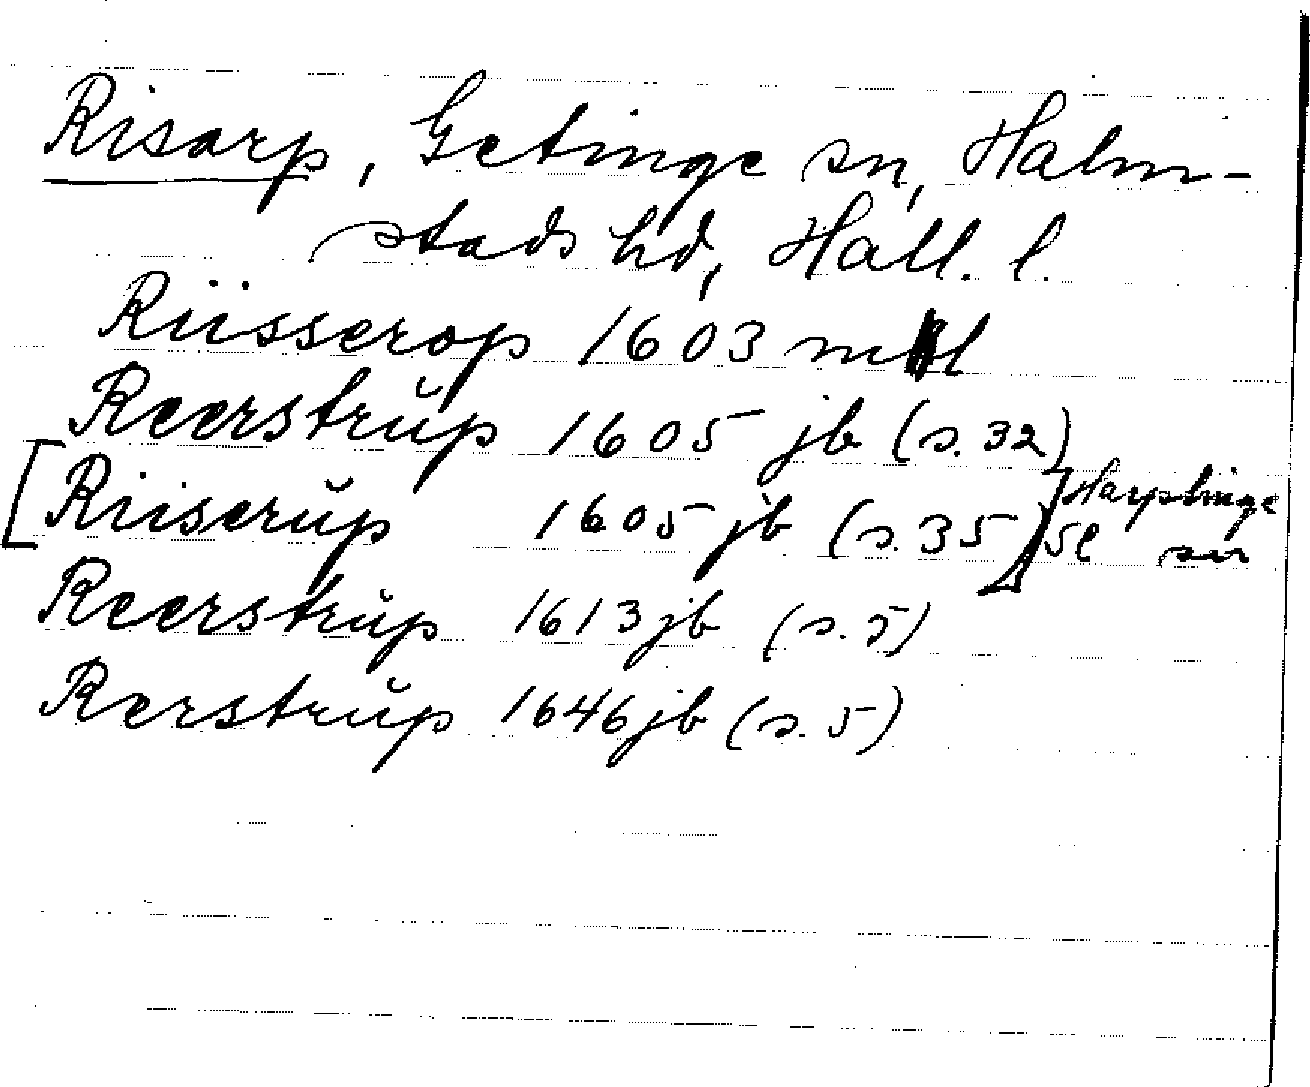 Risarp, Getinge sn, Halm-
stads hd, Hall. l.
Riisserop 1603 ml
Reerstrŭp 1605 jb (s. 32)
[Riiserŭp 1605 jb (s. 35)] Harplinge sn
Reerstrŭp 1613 jb (s. 5)
Rerstrŭp 1646 jb (s. 5)